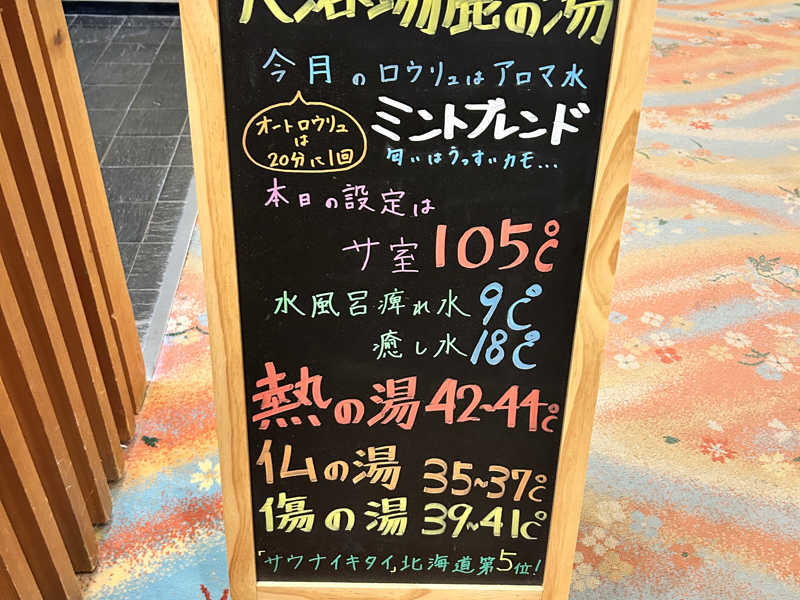 大浴場鹿の湯
今月のロウリュはアロマ水
オートロウリュ
は
20分に1回
ミントブレンド
匂いはうっすいカモ...
本日の設定は
サ室 105℃
水風呂痺れ水 9℃
癒し水 18℃
熱の湯 42~44℃
仏の湯 35~37℃
傷の湯 39~41℃
「サウナイキタイ」北海道第5位!